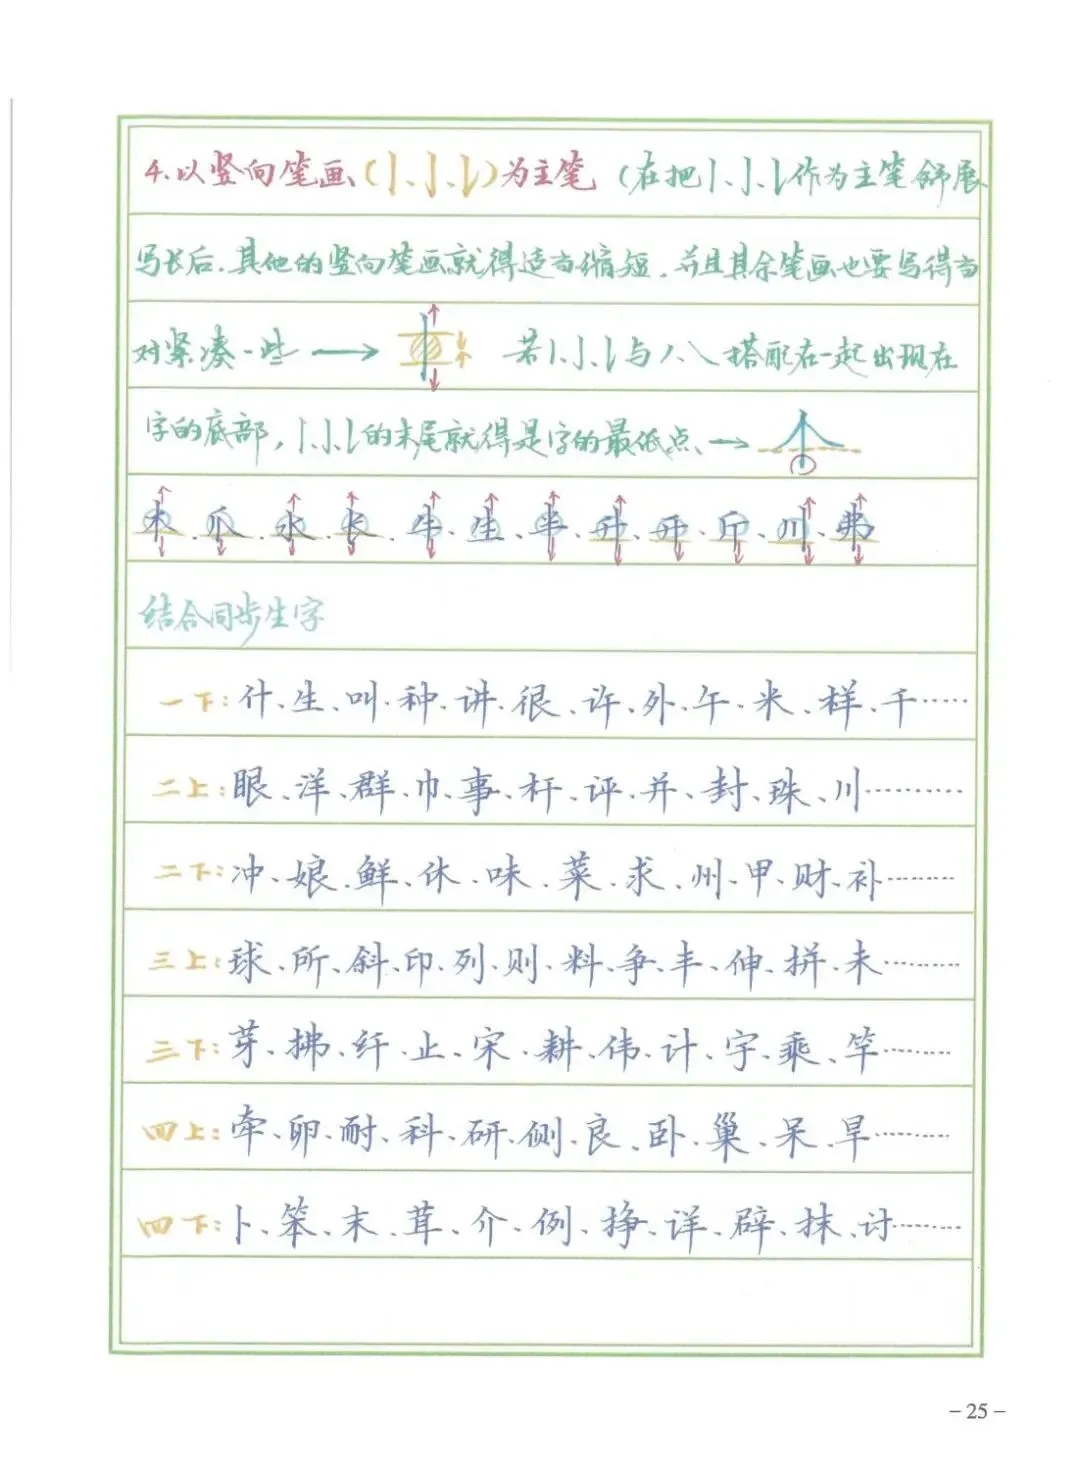 4.以竖向笔画(丨、亅、𠄌)为主笔 (在把丨、亅、𠄌作为主笔舒展
写长后.其他的竖向笔画就得适当缩短.并且其余笔画也要写得相
对紧凑一些 → 若丨、亅、𠄌与八搭配在一起出现在
字的底部,丨、亅、𠄌的末尾就得是字的最低点 →
木.爪.永.长.牛.生.半.升.开.斤.川.弗
结合同步生字
一下:什、生、叫、种、讲、很、许、外、午、米、样、千……
二上:眼、洋、群、巾、事、杆、评、并、封、珠、川………
二下:冲、娘、鲜、休、味、菜、求、州、甲、财、补………
三上:球、所、斜、印、列、则、料、争、丰、伸、拼、未………
三下:芽、拂、纤、止、宋、耕、伟、计、宇、乘、竿………
四上:牵、卵、耐、科、研、侧、良、卧、巢、呆、旱………
四下:卜、笨、末、茸、介、例、挣、详、辟、抹、讨………
-25-